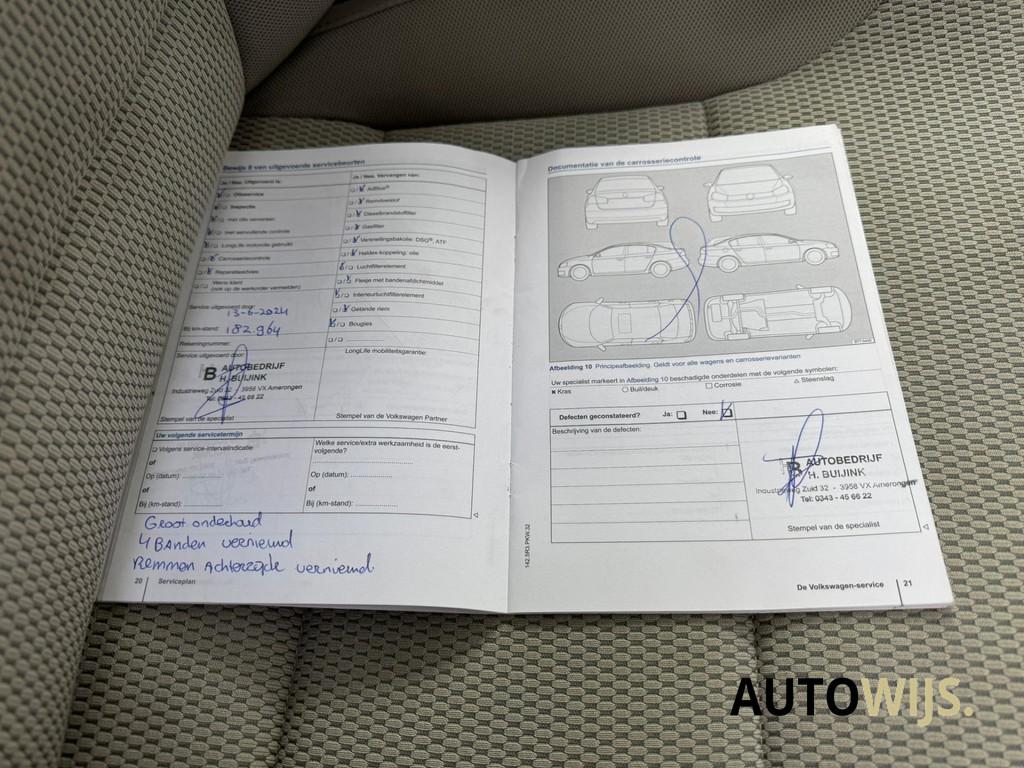 Bewijs 8 van uitgevoerde servicebeurten
Ja / Nee. Uitgevoerd is:
Olieservice
Inspectie
met olie verversen
met aanvullende controle
LongLife motorolie gebruikt
Carrosseriecontrole
Reparatieadvies
Wens klant
(niet op de werkorder vermelden)
Service uitgevoerd door:
13-6-2024
Bij km-stand: 182.964
Rekeningnummer:
Service uitgevoerd door:
B AUTOBEDRIJF
H. BUIJINK
Industrieweg Zuid 32 - 3958 VX Amerongen
Tel: 0343 - 45 66 22
Stempel van de specialist
Ja / Nee. Vervangen van:
AdBlue®
Remvloeistof
Dieselbrandstoffilter
Gasfilter
Versnellingsbakolie: DSG®, ATF
Haldex-koppeling: olie
Luchtfilterelement
Flesje met bandenafdichtmiddel
Interieurluchtfilterelement
Getande riem
Bougies
LongLife mobiliteitsgarantie:
Stempel van de Volkswagen Partner
Uw volgende servicetermijn
Volgens service-intervalindicatie
of
Op (datum):
of
Bij (km-stand):
Welke service/extra werkzaamheid is de eerst-
volgende?
Op (datum):
of
Bij (km-stand):
Groot onderhoud
4 Banden vernieuwd
Remmen Achterzijde vernieuwd
20 Serviceplan
Documentatie van de carrosseriecontrole
Afbeelding 10 Principeafbeelding. Geldt voor alle wagens en carrosserievarianten
Uw specialist markeert in Afbeelding 10 beschadigde onderdelen met de volgende symbolen:
× Kras ○ Buil/deuk □ Corrosie △ Steenslag
Defecten geconstateerd? Ja: Nee:
Beschrijving van de defecten:
B AUTOBEDRIJF
H. BUIJINK
Industrieweg Zuid 32 - 3958 VX Amerongen
Tel: 0343 - 45 66 22
Stempel van de specialist
142.5R3.PKW.32
De Volkswagen-service 21
AUTOWIJS.